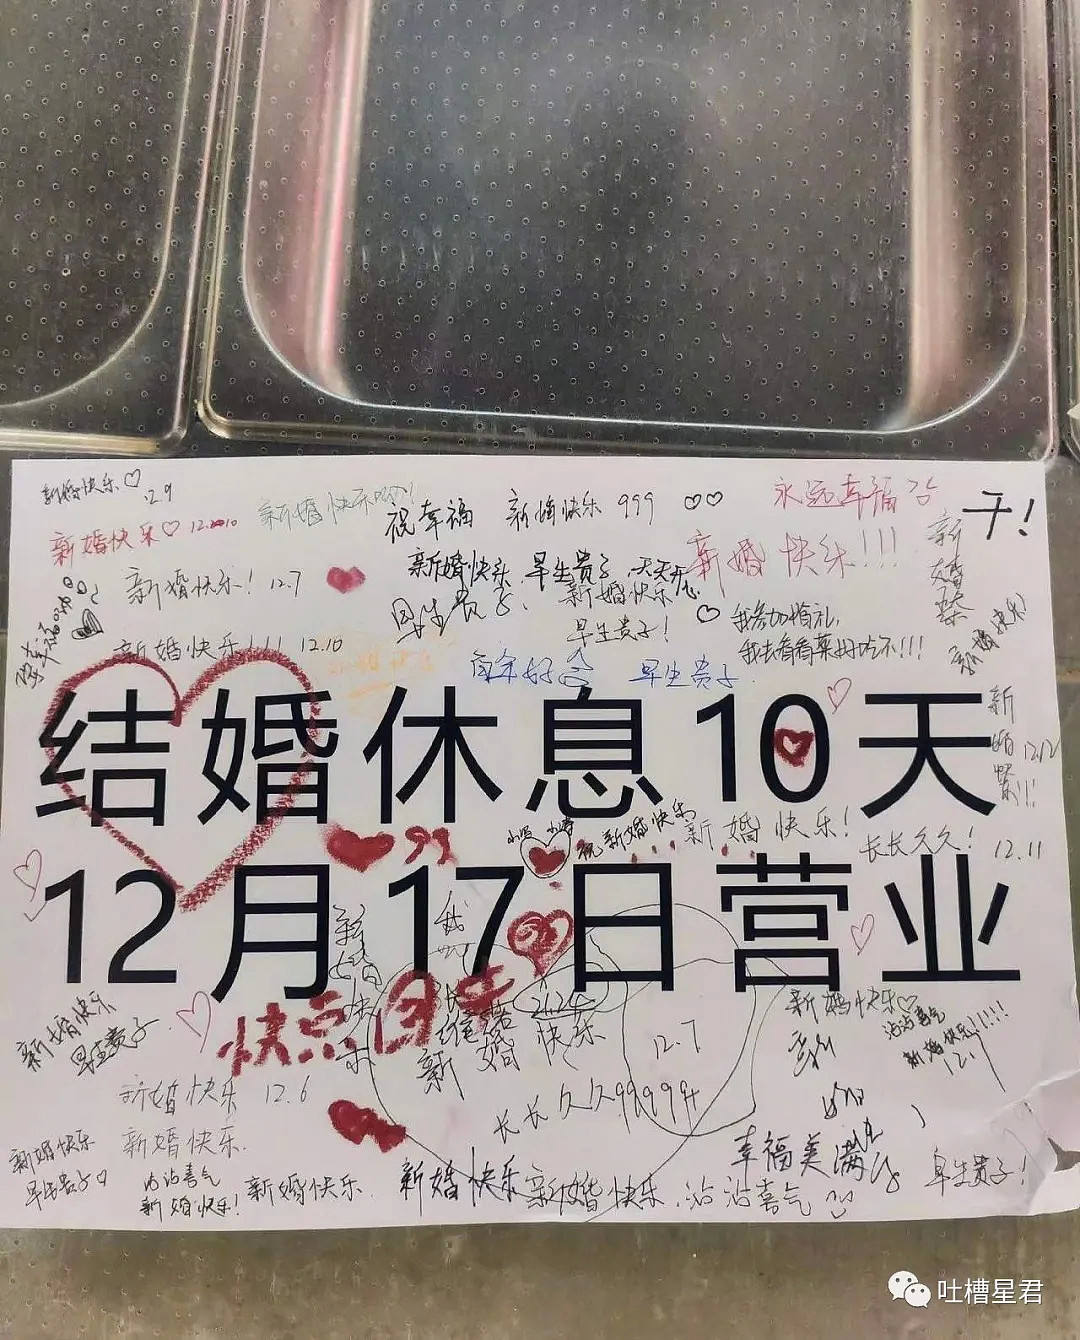 新婚快乐♡ 12.9
新婚快乐♡ 12.10
新婚快乐啊!
祝幸福
新婚快乐 999 ♡♡
永远幸福
干!
新婚快乐! 12.7
新婚快乐 早生贵子 天天开心
新婚快乐!!!
早生贵子
新婚快乐
早生贵子!
♡ 我参加婚礼,
我去看看菜好吃不!!!
新婚快乐
新婚快乐!!! 12.10
百年好合 早生贵子
结婚休息10天
新婚快乐!!! 12.12
祝新婚快乐
新婚快乐!
长长久久! 12.11
99
12月17日营业
快点回来
新婚快乐
新婚快乐
12.7
新婚快乐♡
沾沾喜气
新婚快乐!!!!!
新婚快乐
早生贵子
新婚快乐 12.6
长长久久
新婚快乐
早生贵子♡
新婚快乐
沾沾喜气
新婚快乐!
新婚快乐
新婚快乐
新婚快乐
沾沾喜气
幸福美满
早生贵子!
吐槽星君